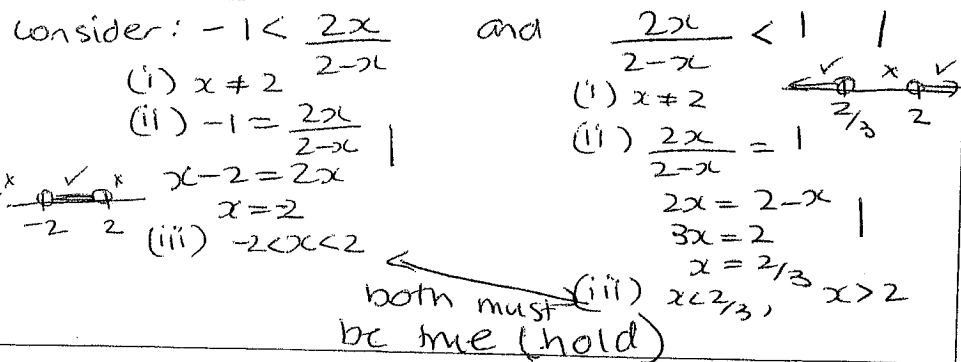 consider: -1 < 2x/(2-x) and 2x/(2-x) < 1 |
(i) x ≠ 2
(ii) -1 = 2x/(2-x) |
x-2 = 2x
x = -2
(iii) -2<x<2
x ✓ x
-2 2
(i) x ≠ 2
✓ x ✓
2/3 2
(ii) 2x/(2-x) = 1
2x = 2-x |
3x = 2
x = 2/3
(iii) x<2/3, x>2
both must
be true (hold)